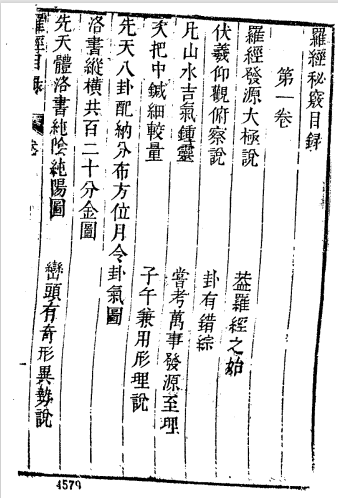 羅經秘竅目録
第一卷
羅經發源太極說
葢羅經之始
伏羲仰觀俯察說
卦有錯綜
凡山水吉氣鍾靈
嘗考萬事發源至理
欠把中鍼細較量
子午兼用形理說
先天八卦配納分布方位月令卦氣圖
洛書縱橫共百二十分金圖
先天體洛書純陰純陽圖
巒頭有奇形異勢說
羅經目录
卷
4579